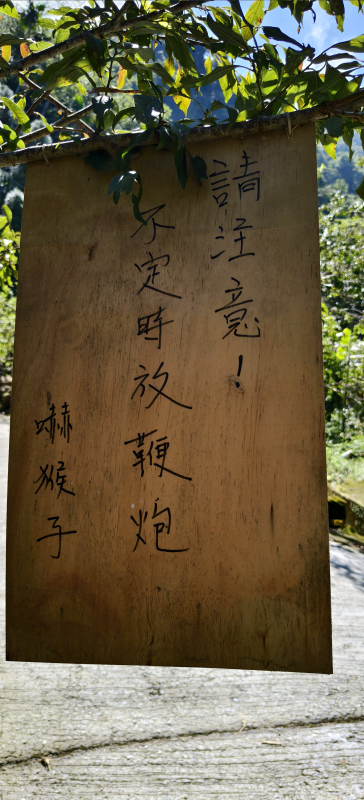 請注意！
不定時放鞭炮
嚇猴子